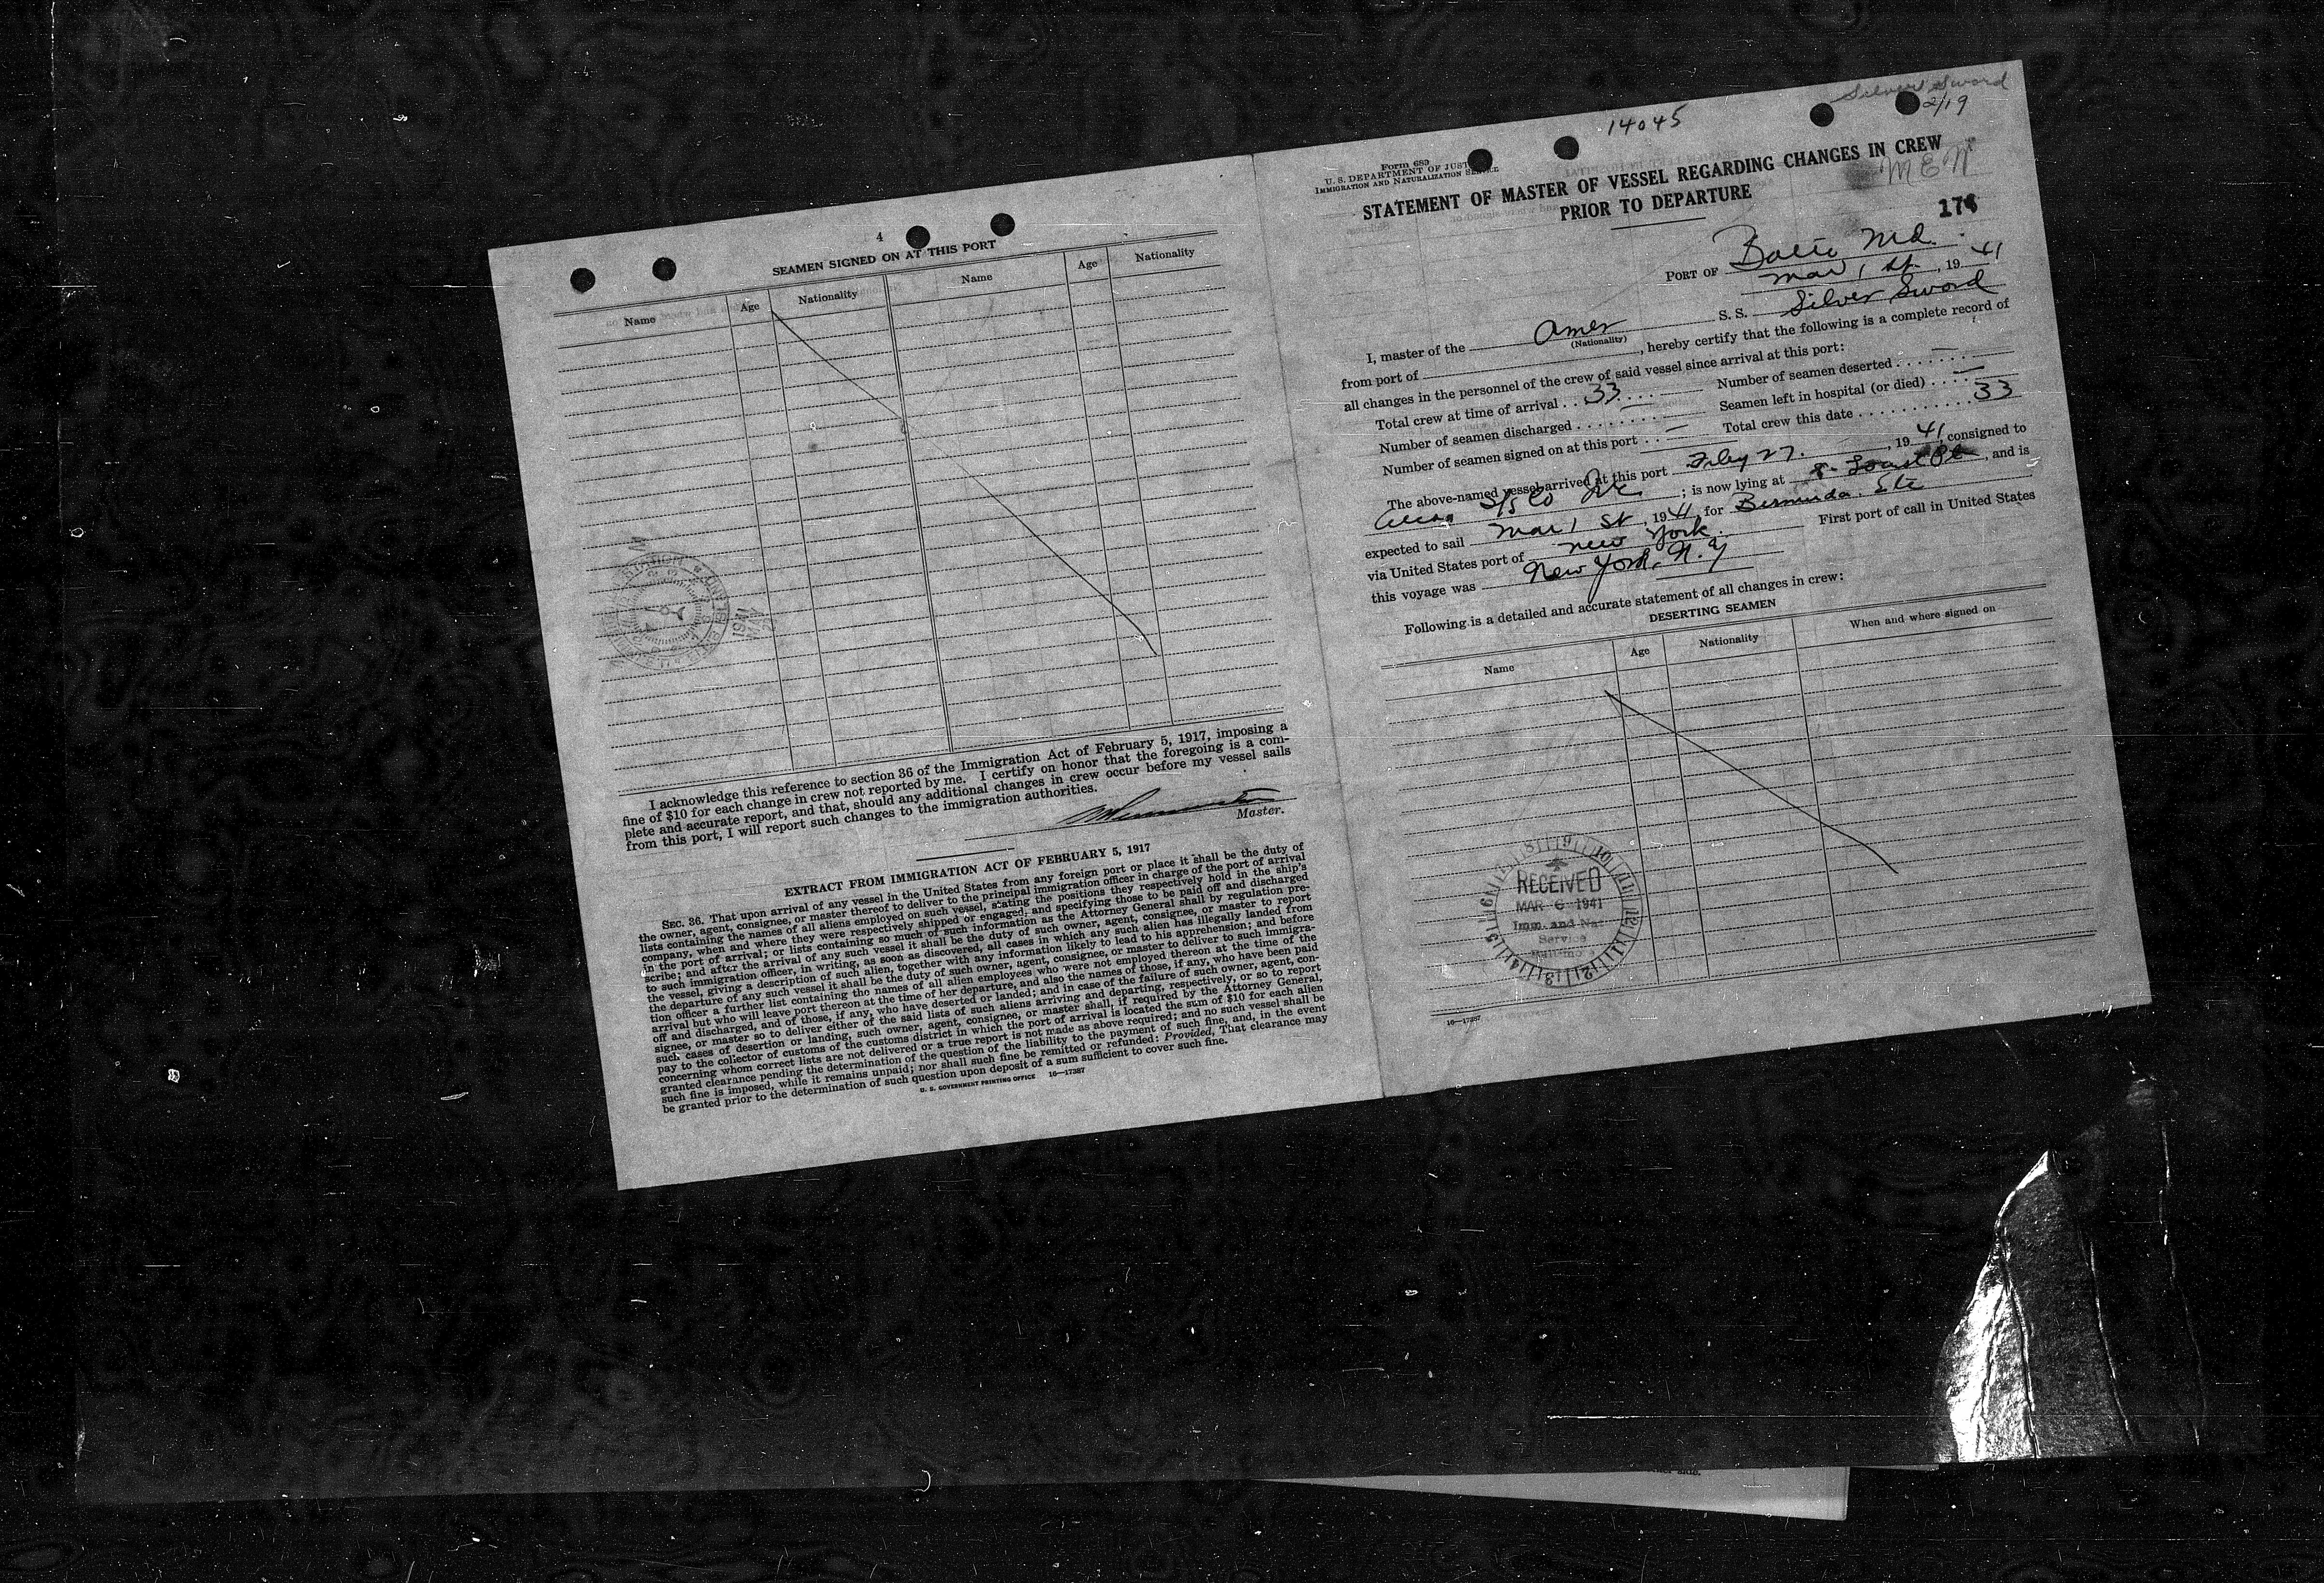 4
SEAMEN SIGNED ON AT THIS PORT
Name Age Nationality Name Age Nationality
I acknowledge this reference to section 36 of the Immigration Act of February 5, 1917, imposing a
fine of $10 for each change in crew not reported by me. I certify on honor that the foregoing is a com-
plete and accurate report, and that, should any additional changes in crew occur before my vessel sails
from this port, I will report such changes to the immigration authorities.
Master.
EXTRACT FROM IMMIGRATION ACT OF FEBRUARY 5, 1917
SEC. 36. That upon arrival of any vessel in the United States from any foreign port or place it shall be the duty of
the owner, agent, consignee, or master thereof to deliver to the principal immigration officer in charge of the port of arrival
lists containing the names of all aliens employed on such vessel, stating the positions they respectively hold in the ship's
company, when and where they were respectively shipped or engaged, and specifying those to be paid off and discharged
in the port of arrival; or lists containing so much of such information as the Attorney General shall by regulation pre-
scribe; and after the arrival of any such vessel it shall be the duty of such owner, agent, consignee, or master to report
to such immigration officer, in writing, as soon as discovered, all cases in which any such alien has illegally landed from
the vessel, giving a description of such alien, together with any information likely to lead to his apprehension; and before
the departure of any such vessel it shall be the duty of such owner, agent, consignee, or master to deliver to such immigra-
tion officer a further list containing the names of all alien employees who were not employed thereon at the time of the
arrival but who will leave port thereon at the time of her departure, and also the names of those, if any, who have been paid
off and discharged, and of those, if any, who have deserted or landed; and in case of the failure of such owner, agent, con-
signee, or master so to deliver either of the said lists of such aliens arriving and departing, respectively, or so to report
such cases of desertion or landing, such owner, agent, consignee, or master shall, if required by the Attorney General,
pay to the collector of customs of the customs district in which the port of arrival is located the sum of $10 for each alien
concerning whom correct lists are not delivered or a true report is not made as above required; and no such vessel shall be
granted clearance pending the determination of the question of the liability to the payment of such fine, and, in the event
such fine is imposed, while it remains unpaid; nor shall such fine be remitted or refunded: Provided, That clearance may
be granted prior to the determination of such question upon deposit of a sum sufficient to cover such fine.
U. S. GOVERNMENT PRINTING OFFICE 16—17387
Silver Sword
2/19
14045
Form 689
U. S. DEPARTMENT OF JUST
IMMIGRATION AND NATURALIZATION SERVICE
STATEMENT OF MASTER OF VESSEL REGARDING CHANGES IN CREW
PRIOR TO DEPARTURE
PORT OF Balto Md.
Mar 1 st, 19 41
I, master of the Amer S. S. Silver Sword
(Nationality)
from port of , hereby certify that the following is a complete record of
all changes in the personnel of the crew of said vessel since arrival at this port:
Total crew at time of arrival . . 33 . . . . Number of seamen deserted . . . . . . . —
Number of seamen discharged . . . . . . . . — Seamen left in hospital (or died) . . . . —
Number of seamen signed on at this port . . — Total crew this date . . . . . . . . . . . 33
The above-named vessel arrived at this port Feby 27. , 19 41, consigned to
S/S Co ; is now lying at Locust Pt , and is
expected to sail Mar 1 st , 19 41, for Bermuda. Etc
via United States port of New York. First port of call in United States
this voyage was New York, N. Y
Following is a detailed and accurate statement of all changes in crew:
DESERTING SEAMEN
Name Age Nationality When and where signed on
RECEIVED
MAR 6 1941
Imm. and Nat
Service
16—17387
side.